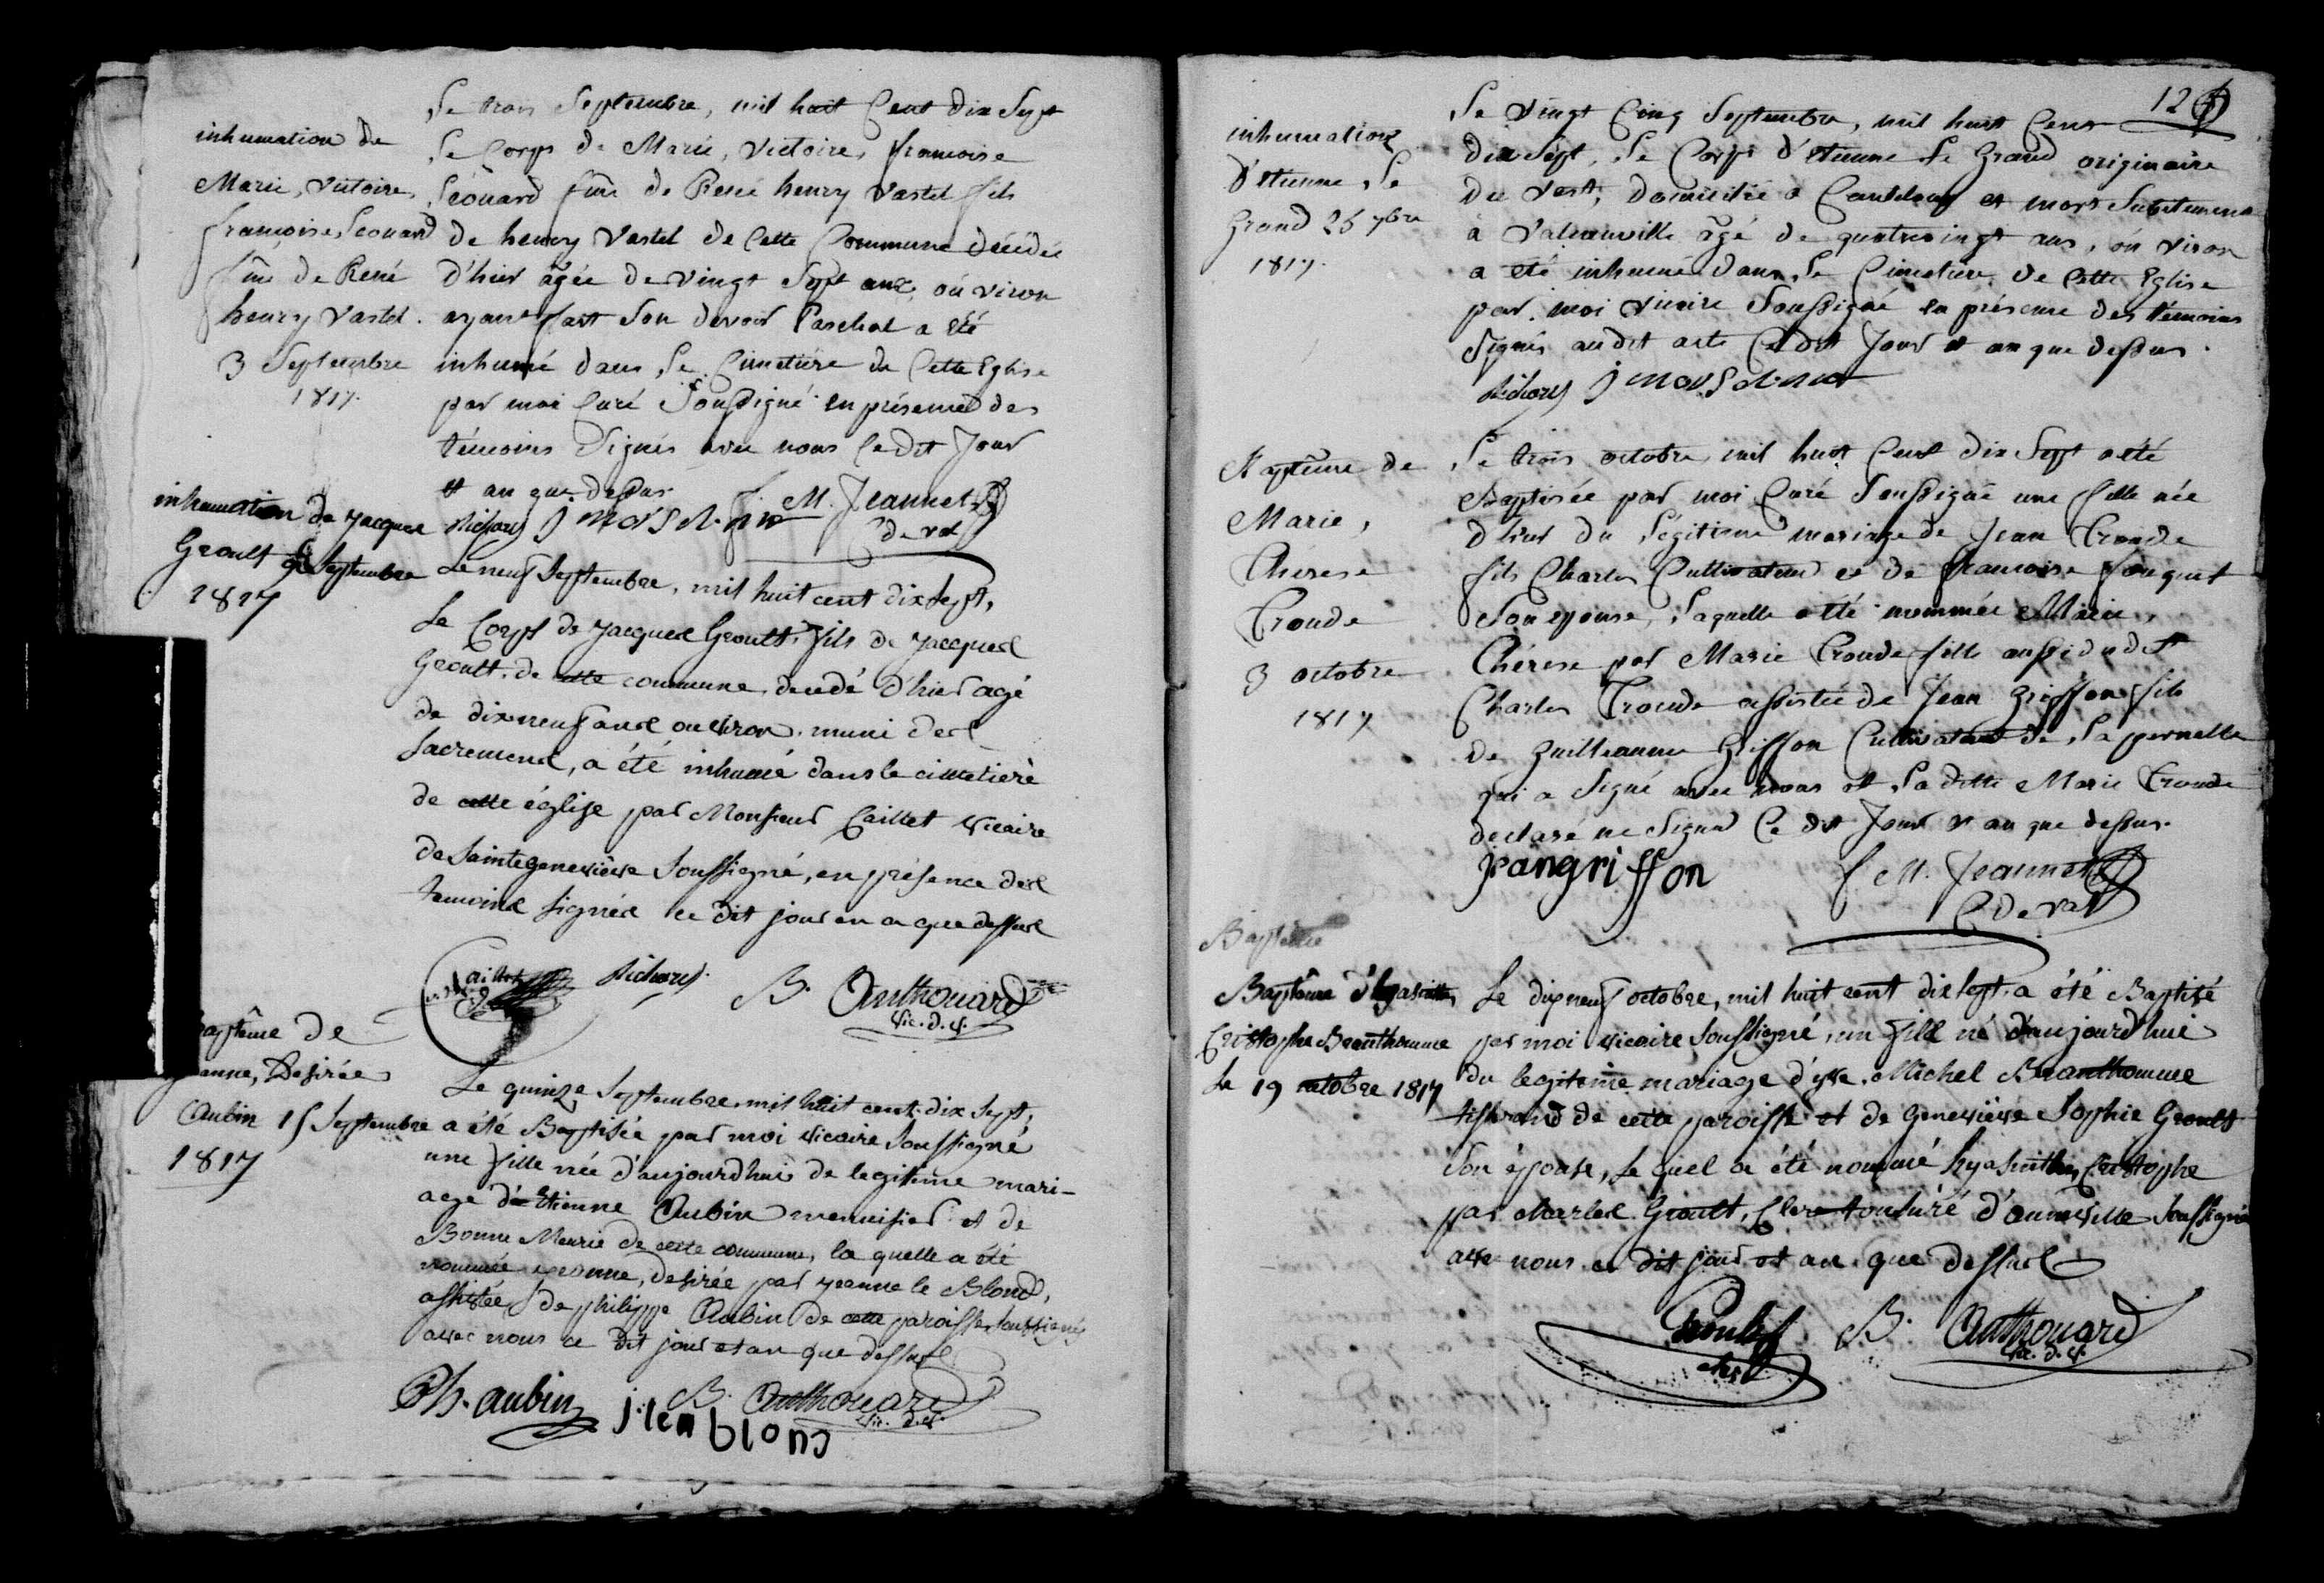 inhumation de
Marie, Victoire,
françoise, Léouard
fme de René
henry Vastel.
3 Septembre
1817.
Le trois Septembre, mil huit Cent dix Sept
Le Corps de Marie, Victoire, françoise
Léouard fme de René henry Vastel fils
de henry Vastel de Cette Commune décédée
d'hier âgée de vingt Sept ans, ou viron
ayant fait Son devoir Paschal a été
inhumé dans Le Cimetière de Cette Eglise
par moi Curé Soussigné en présence des
témoins Signés avec nous Ce dit Jour
et an que dessus.
Richard M. Jeannet
C de val
inhumation de jacques
Groult 9 Septembre
1817
Le neuf Septembre, mil huit cent dix sept,
Le Corps de jacques Groult, fils de jacques
Groult, de cette commune, decedé d'hier agé
de dixneuf ans ou viron, muni des
Sacremens, a été inhumé dans le cimetierè
de cette église par Monsieur Caillet vicaire
de Sainte genevieve Soussigné, en présence des
temoins signés ce dit jour en a que dessus
Caillet Richard B. Anthouard
Vic. d. V.
Baptême de
jeanne, Desirée
Aubin 15 Septembre
1817
Le quinze Septembre, mil huit cent dix sept,
a été Baptisée par moi vicaire Soussigné
une fille née d'aujourdhui de legitime mari-
age d'Etienne Aubin menuisier et de
Bonne Meurie de cette commune, la quelle a été
nommée jeanne, desirée par jeanne le Blond,
assistée de philippe Aubin de cette paroisse, soussignés
avec nous ce dit jour et an que dessus
Ph. aubin B. Anthouard
Vic. d. V.
j leu blond
12
inhumation
D'etienne, Le
Grand 25 7bre
1817.
Le vingt Cinq Septembre, mil huit Cent
dix Sept, Le Corps d'etienne Le Grand originaire
du Vast, domicilié à Canteloup et mort Subitement
à Valcanville âgé de quatrevingt ans, ou viron
a été inhumé dans Le Cimetière de Cette Eglise
par moi vicaire Soussigné en présence des témoins
Signés au dit acte Ce dit Jour et an que dessus.
Richard
Baptême de
Marie,
Thérese
Troude
3 octobre
1817
Le trois octobre, mil huit Cent dix Sept a été
Baptisée par moi Curé Soussigné une fille née
d'hier du Légitime mariage de Jean Troude
fils Charles Cultivateur et de françoise fouquet
Son épouse, Laquelle a été nommée Marie,
Thérese par Marie Troude fille aussi dudit
Charles Troude assistée de Jean Griffon fils
de Guilleaume Griffon Cultivateur de La pernelle
qui a Signé avec nous et La dite Marie Troude
déclaré ne Signer Ce dit Jour et an que dessus.
jeangriffon M. Jeannet
C de val
Baptême
Baptême d'hyasinthe,
Cristophe Branthomme
Le 19 octobre 1817
Le dixneuf octobre, mil huit cent dix sept, a été Baptisé
par moi vicaire, Soussigné, un fils né d'aujourd'hui
du legitime mariage d'yve, Michel Branthomme
tisserand de cette paroisse et de Genevieve Sophie Groult
Son épouse, Le quel a été nommé hyasinthe, Cristophe
par Charles Groult, Clerc tonsuré d'anneville Soussigné
avec nous ce dit jour et an que dessus
Groult B. Anthouard
clerc Vic. d. V.